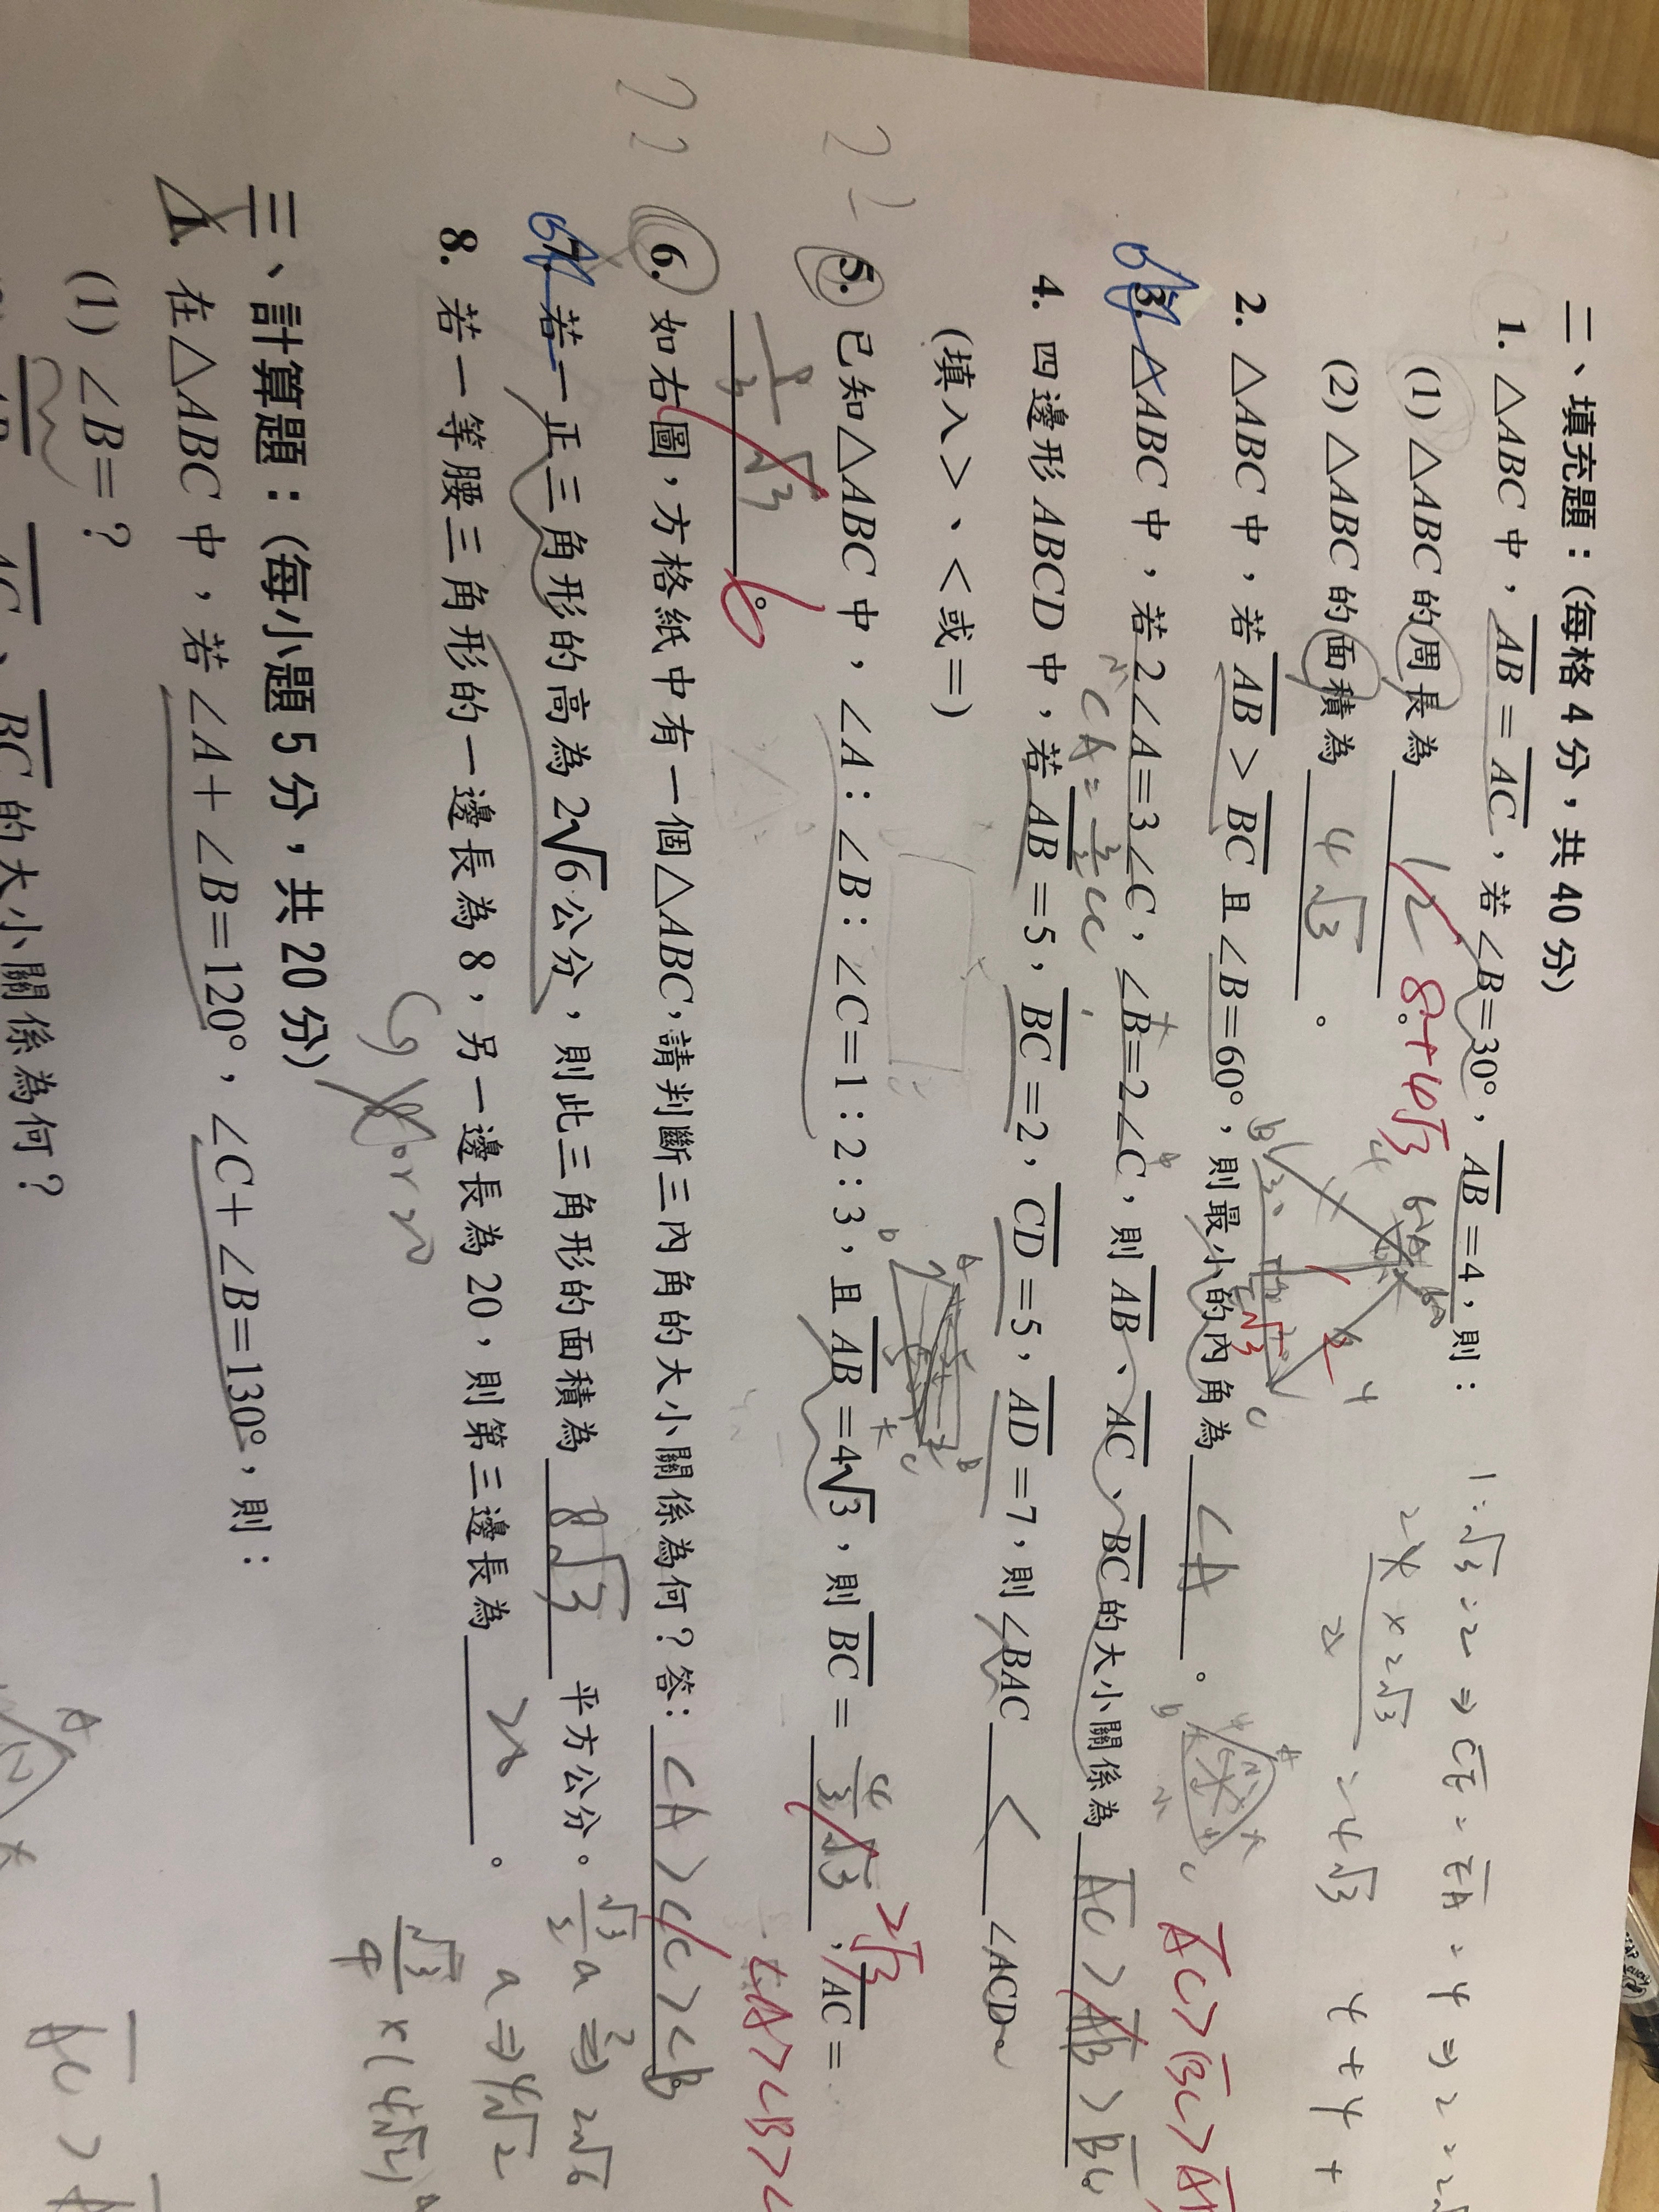 二、填充題：(每格 4 分，共 40 分)
1. △ABC 中，AB = AC，若 ∠B=30°，AB=4，則：
(1) △ABC 的周長為 12 。 8+4√3
(2) △ABC 的面積為 4√3 。
1:√3:2
4+4+
2. △ABC 中，若 AB > BC 且 ∠B=60°，則最小的內角為 <A 。
3. △ABC 中，若 2∠A=3∠C，∠B=2∠C，則 AB、AC、BC 的大小關係為 AC>AB>BC
AC>BC>
4. 四邊形 ABCD 中，若 AB=5，BC=2，CD=5，AD=7，則 ∠BAC < ∠ACD。
(填入 >、< 或 =)
5. 已知△ABC 中，∠A：∠B：∠C=1：2：3，且 AB=4√3，則 BC= 4/3√3 ，AC=
2√3
8/3√3 。 6
6. 如右圖，方格紙中有一個△ABC，請判斷三內角的大小關係為何？答： <A><C><B
<A><B><
7. 若一正三角形的高為 2√6 公分，則此三角形的面積為 8√3 平方公分。
√3/2 a ⇒ 2√6
8. 若一等腰三角形的一邊長為 8，另一邊長為 20，則第三邊長為 20 。
a ⇒ 4√2
√3/4 ×(4√2)
8 or 20
三、計算題：(每小題 5 分，共 20 分)
1. 在△ABC 中，若 ∠A+∠B=120°，∠C+∠B=130°，則：
(1) ∠B=？
AC、BC 的大小關係為何？